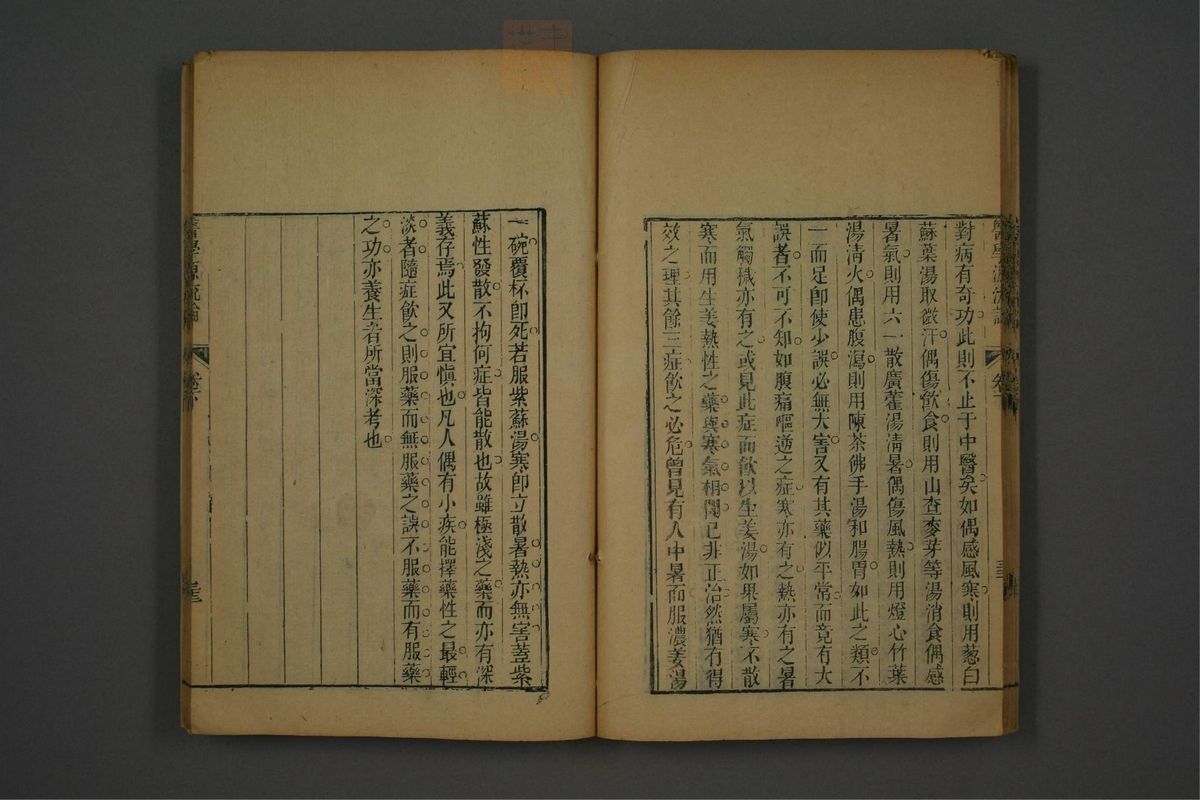 對病有奇功此則不止于中醫矣如偶感風寒則用葱白
蘇葉湯取微汗偶傷飲食則用山查麥芽等湯消食偶感
暑氣則用六一散廣藿湯清暑偶傷風熱則用燈心竹葉
湯清火偶患腹瀉則用陳茶佛手湯和腸胃如此之類不
一而足卽使少誤必無大害又有其藥似平常而竟有大
誤者不可不知如腹痛嘔逆之症寒亦有之熱亦有之暑
氣觸穢亦有之或見此症而飲以生姜湯如果屬寒不散
寒而用生姜熱性之藥與寒氣相鬭已非正治然猶有得
效之理其餘三症飲之必危曾見有人中暑而服濃姜湯
一碗覆杯卽死若服紫蘇湯寒卽立散暑熱亦無害葢紫
蘇性發散不拘何症皆能散也故雖極淺之藥而亦有深
義存焉此又所宜愼也凡人偶有小疾能擇藥性之最輕
淡者隨症飲之則服藥而無服藥之誤不服藥而有服藥
之功亦養生者所當深考也
醫學源流論